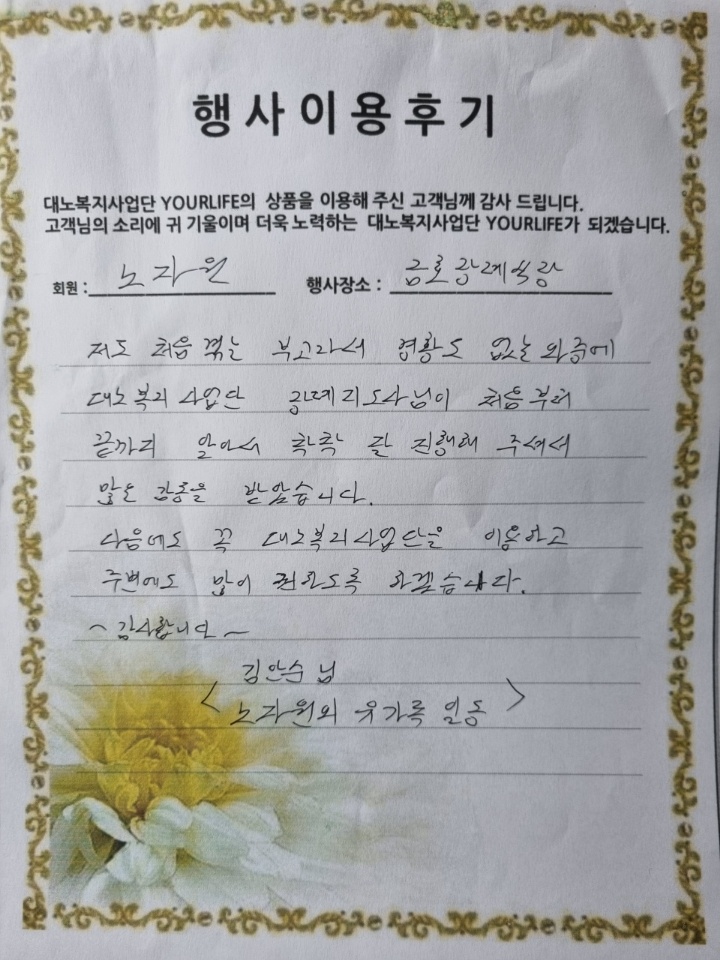 행사이용후기
대노복지사업단 YOURLIFE의 상품을 이용해 주신 고객님께 감사 드립니다.
고객님의 소리에 귀 기울이며 더욱 노력하는 대노복지사업단 YOURLIFE가 되겠습니다.
회원 : 노자원 행사장소 : 금호장례식장
저도 처음 겪는 부고라서 경황도 없는 와중에
대노복지사업단 장례지도사님이 처음부터
끝까지 알아서 착착 잘 진행해 주셔서
많은 감동을 받았습니다.
다음에도 꼭 대노복지사업단을 이용하고
주변에도 많이 권하도록 하겠습니다.
~ 감사합니다 ~
< 김안순 님
노자원외 유가족 일동 >